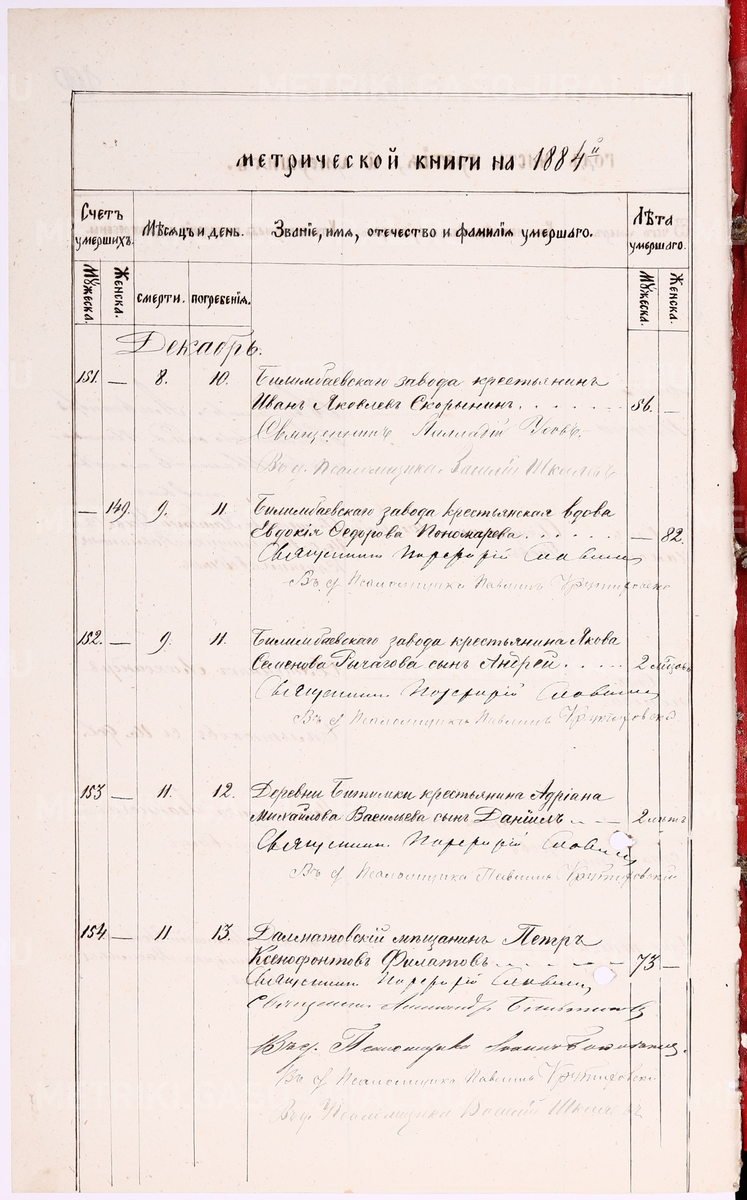 метрической книги на 1884й
Счетъ умершихъ.
Мѣсяцъ и день.
Званіе, имя, отечество и фамилія умершаго.
Лѣта умершаго.
Мужеска.
Женска.
смерти.
погребенія.
Мужеска.
Женска.
Декабрь.
151. — 8. 10. Билимбаевскаго завода крестьянинъ
Иванъ Яковлевъ Скорынинъ. 56. —
Священникъ Палладій
Въ д. Псаломщика Василій
— 149. 9. 11. Билимбаевскаго завода крестьянская вдова
Евдокія Ѳедорова Пономарева. — 82.
Священникъ Порфирій Славнинъ
Въ д. Псаломщика Павлинъ
152. — 9. 11. Билимбаевскаго завода крестьянина Якова
Семенова Рычагова сынъ Андрей. 2 мѣсяцовъ
Священникъ Порфирій Славнинъ
Въ д. Псаломщика Павлинъ
153 — 11. 12. Деревни Битимки крестьянина Адріана
Михайлова Васильева сынъ Даніилъ 2 лѣтъ
Священникъ Порфирій Славнинъ
Въ д. Псаломщика Павлинъ
154 — 11 13. Далматовскій мѣщанинъ Петръ
Ксенофонтовъ Филатовъ. 73 —
Священникъ Порфирій Славнинъ
Священникъ Александръ
Въ д. Псаломщика Іоаннъ
Въ д. Псаломщика Павлинъ
Въ д. Псаломщика Василій